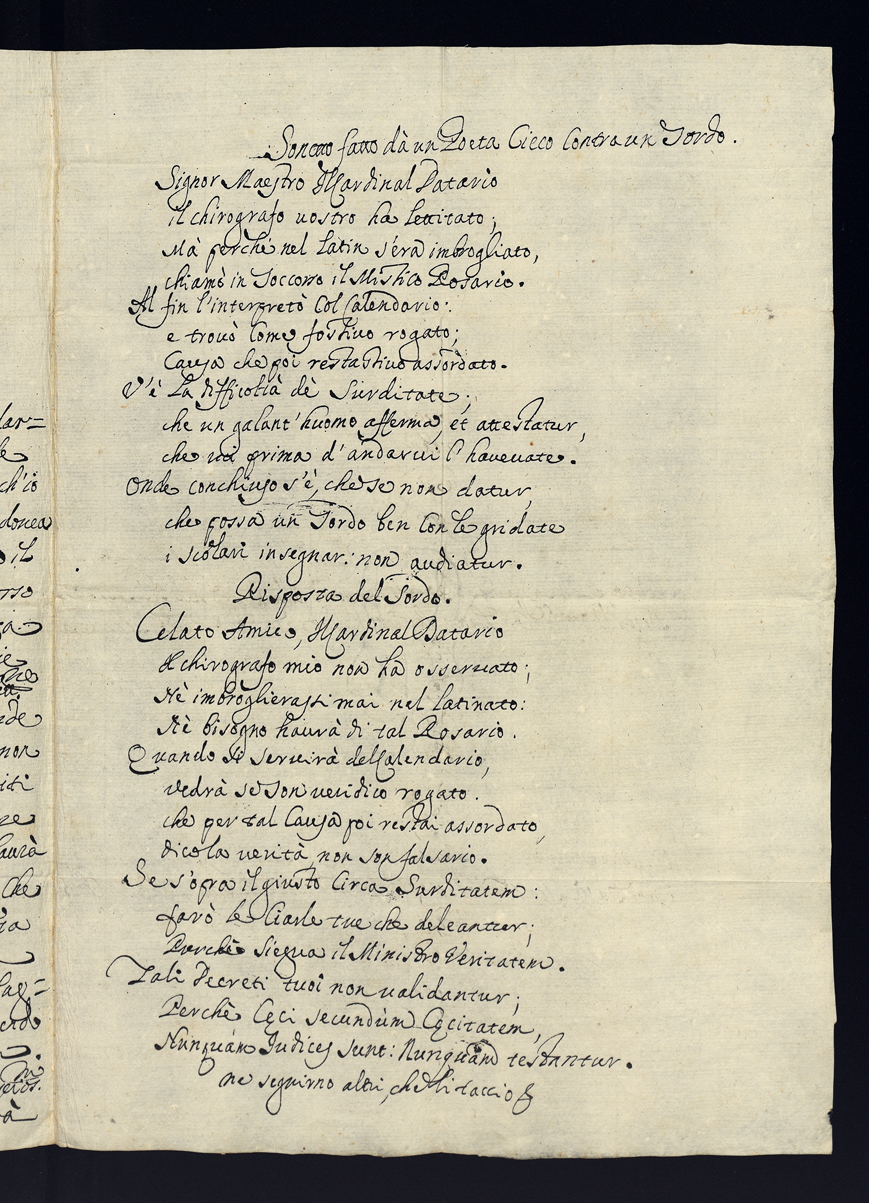 Sonetto fatto dà un Poeta Cieco Contra un Sordo.
Signor Maestro Il Cardinal Datario
il chirografo vostro ha lettitato;
Mà perche nel Latin s'era imbrogliato,
chiamò in Soccorso il Mistico Rosario.
Al fin l'interpretò Col Calendario:
e trovò Come fostivo rogato;
Causa che poi restastivo assordato.
V'è La difficoltà dè Surditate;
che un galant'huomo afferma, et attestatur,
che vi prima d'andarvi l'havevate.
Onde conchiuso s'è, che se non datur,
che possa un Sordo ben Con le gridate
i scolari insegnar: non audiatur.
Risposta del Sordo.
Celato Amico, Il Cardinal Datario
Il chirografo mio non ha osservato;
Nè imbroglierassi mai nel latinato:
Nè bisogno haurà di tal Rosario.
Quando si servirà del Calendario,
vedrà se son veridico rogato.
che per tal Causa poi restai assordato,
dico la verità, non son falsario.
Se s'opra il giusto Circa Surditatem:
farò le Ciarle tue che deleantur;
Perchè siegua il Ministro Veritatem.
Tali Decreti tuoi non validantur;
Perchè Cęci secundùm Cęcitatem,
Nunquám Judices sunt: Nunquàm testantur.
ne seguirno altri, che li taccio
lar=
le
ch'io
il
non
che